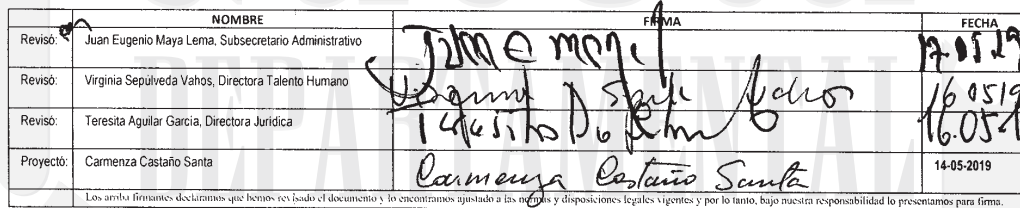 NOMBRE FIRMA FECHA
Revisó: Juan Eugenio Maya Lema, Subsecretario Administrativo 17.05.19
Revisó: Virginia Sepúlveda Vahos, Directora Talento Humano 160519
Revisó: Teresita Aguilar García, Directora Jurídica 16.051
Proyectó: Carmenza Castaño Santa Carmenza Castaño Santa 14-05-2019
Los arriba firmantes declaramos que hemos revisado el documento y lo encontramos ajustado a las normas y disposiciones legales vigentes y por lo tanto, bajo nuestra responsabilidad lo presentamos para firma.